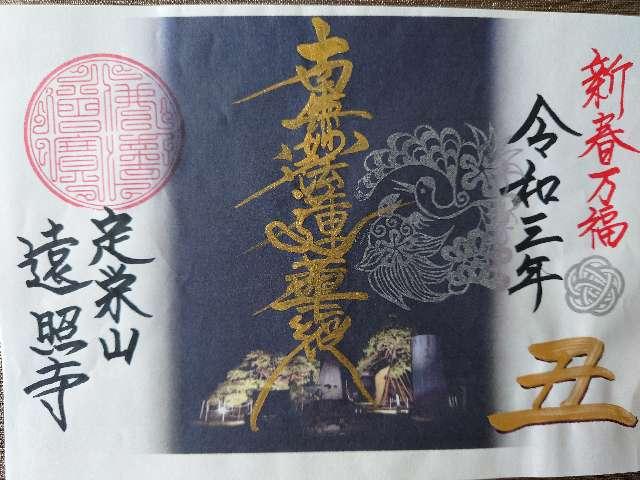 新春万福
令和三年
丑
南無妙法蓮華経
定栄山
遠照寺